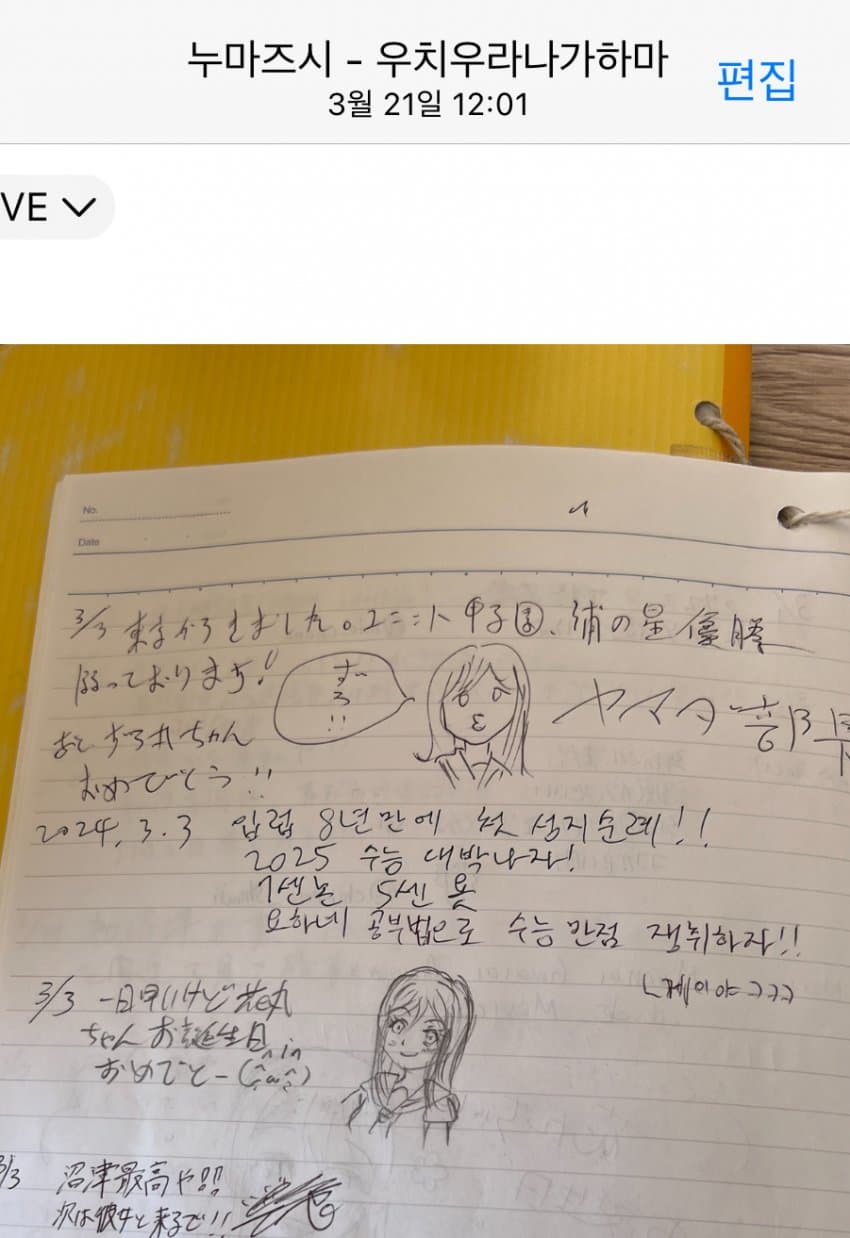 누마즈시 - 우치우라나가하마
3월 21일 12:01
편집
VE
No.
Date
3/3 東京から来ました。ユニット甲子園、浦の星優勝
願っております!
ずら!!
ヤマタ
ちゃん
おめでとう!!
2024.3.3 입럽 8년만에 첫 성지순례!!
2025 수능 대박나자!
1센논 5센 욧
요하네 공부법으로 수능 만점 쟁취하자!!
ㄴ게이야ㅋㅋㅋ
3/3 一日早いけど花丸
ちゃんお誕生日
おめでとー
3/3 沼津最高や!!
次は彼女と来るで!!